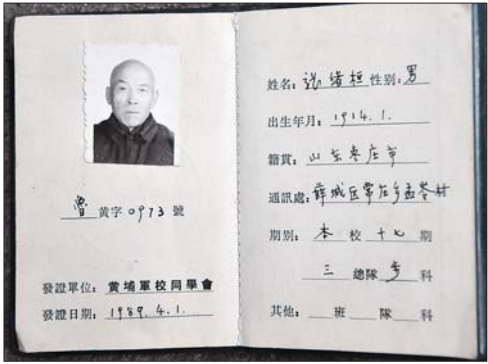 魯 黄字 0973 號
發證單位：黄埔軍校同學會
發證日期：1989.4.1.
姓名：张绪桓 性别：男
出生年月：1914.1.
籍貫：山东枣庄市
通訊處：薛城区常庄乡孟岺村
期别：本 校 十七 期
三 總隊 步 科
其他： 班 隊 科